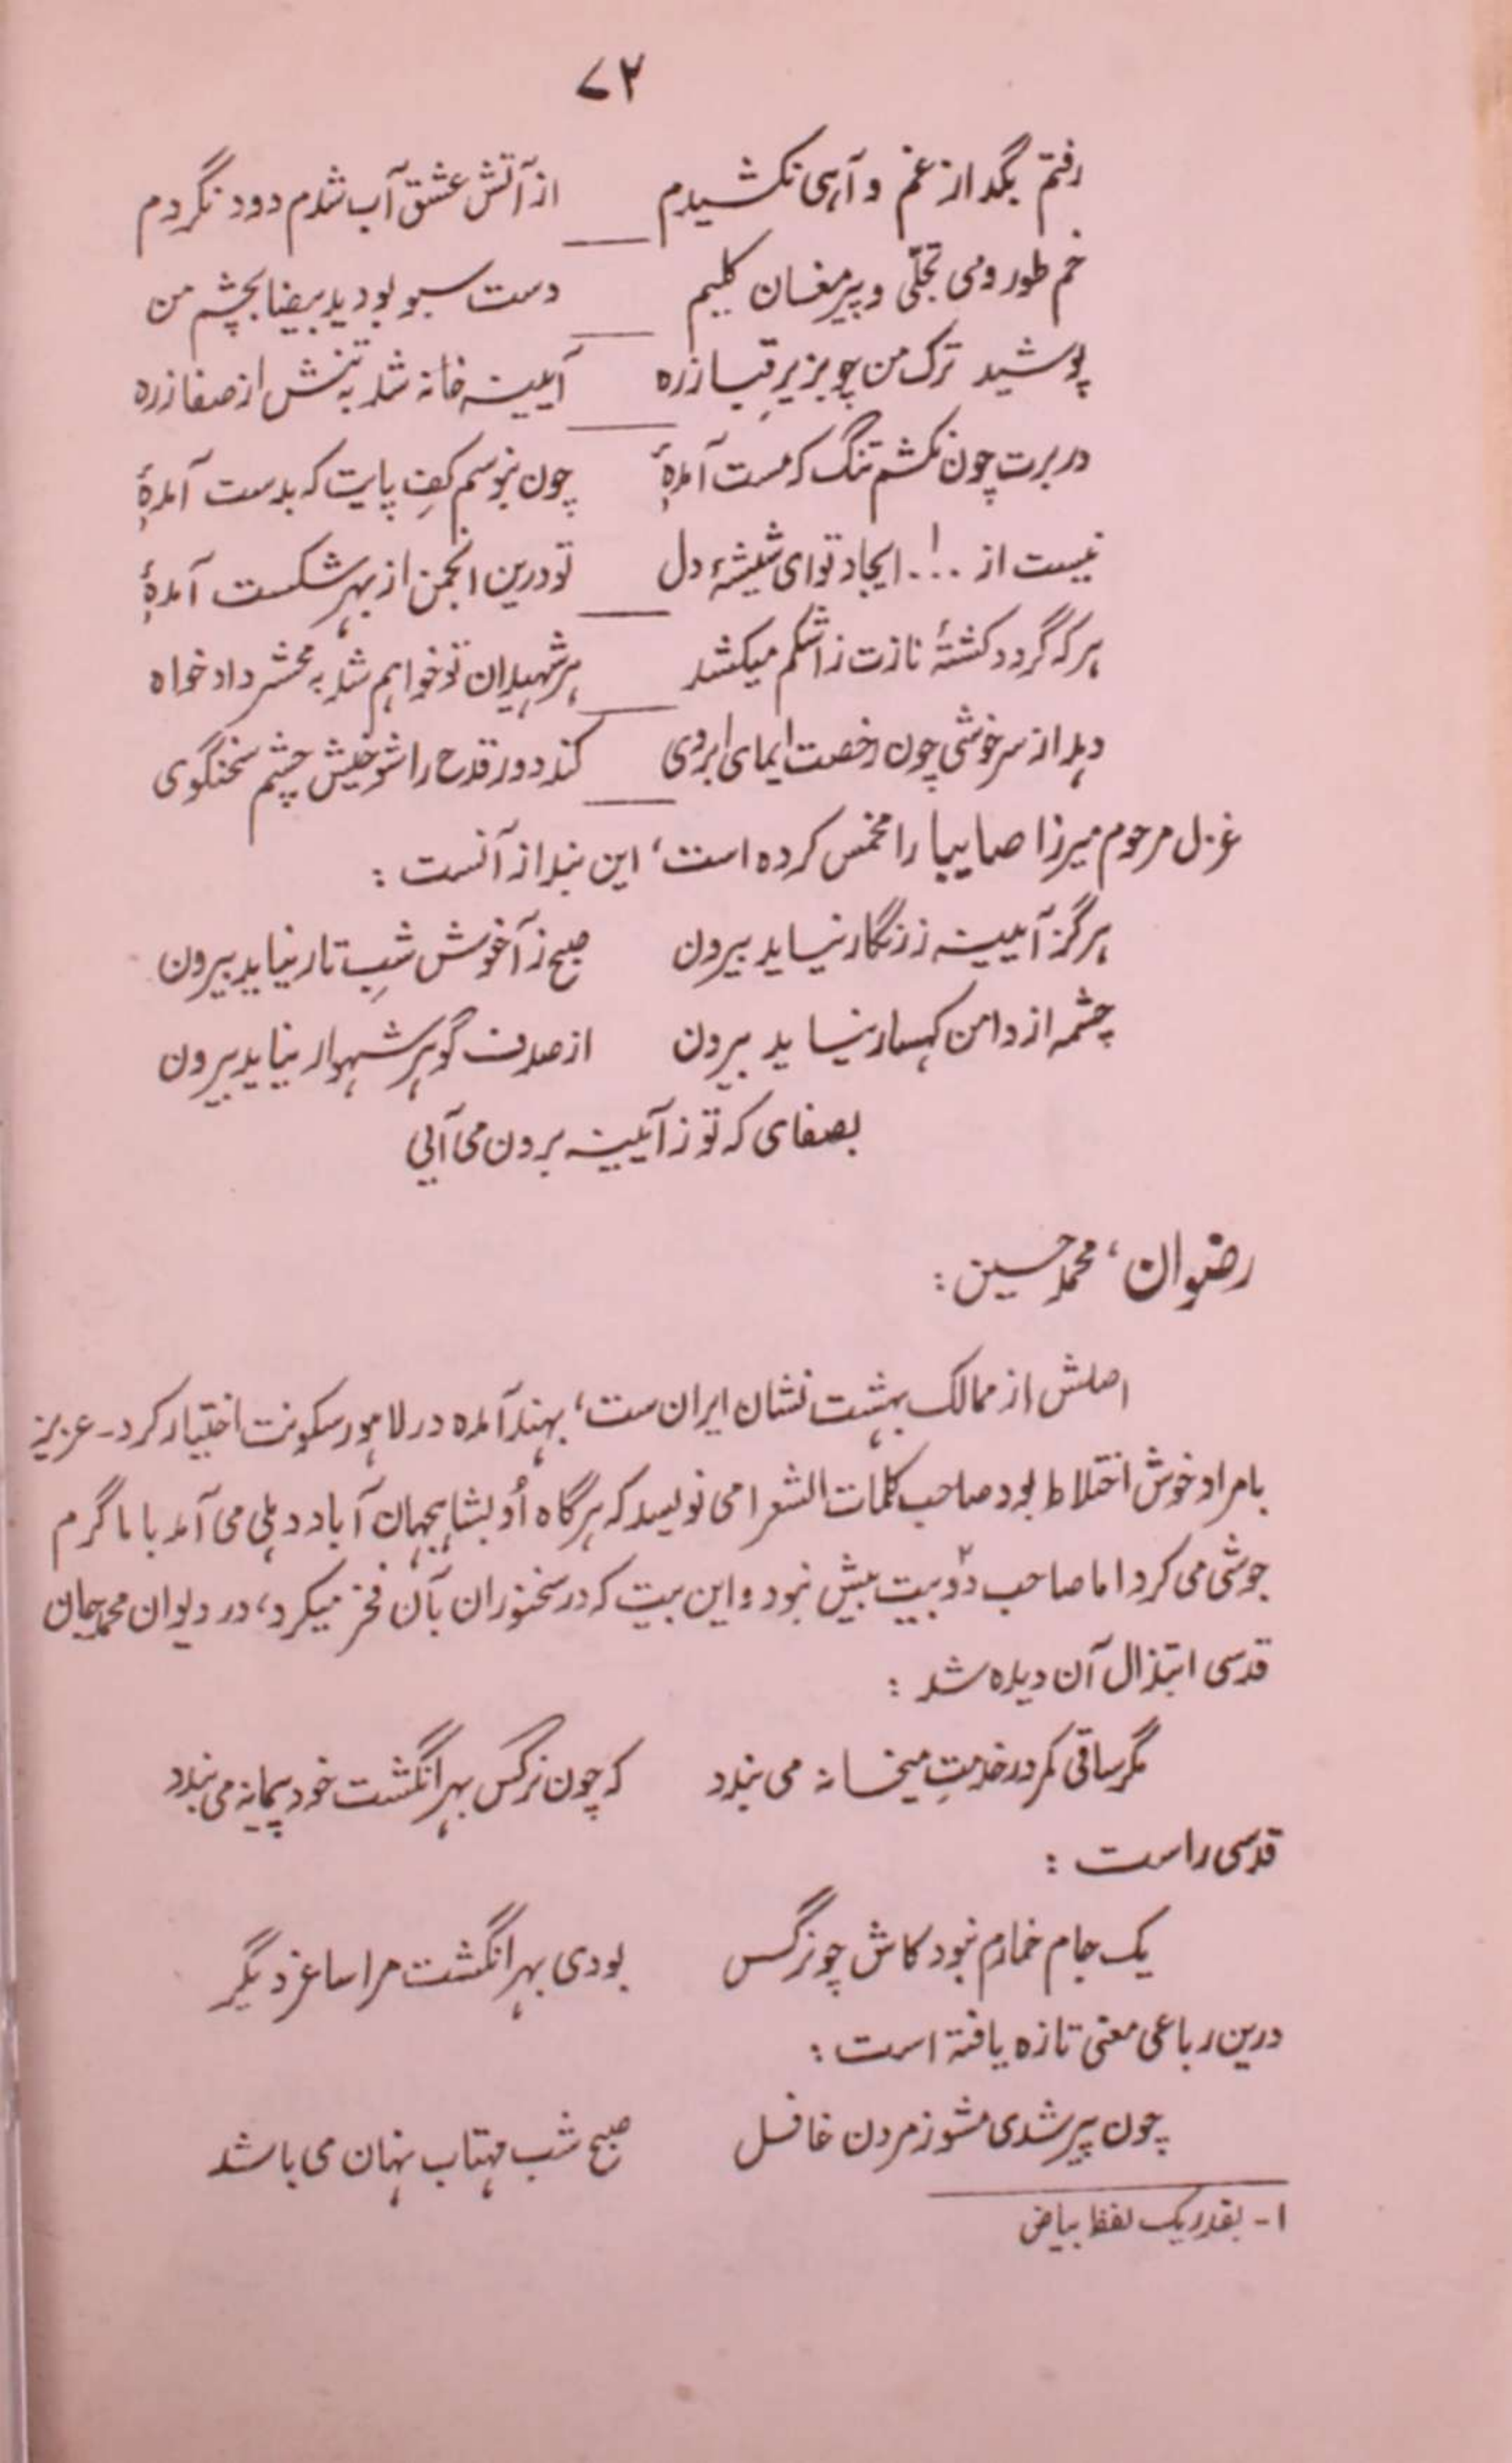 ۷۲
رفتم بگداز غم و آہی نکشیدم از آتش عشق آب شدم دود نگردم
خم طور و می تجلّی و پیر مغان کلیم دست سبو بود ید بیضا بچشم من
پوشید ترک من چو بزیرِ قبا زره آیینه خانه شد به تنش از صفا زره
در برت چون نکشم تنگ که مست آمدۂ چون نبوسم کفِ پایت که بدست آمدۂ
نیست از ...۱ ایجاد تو ای شیشۂ دل تو درین انجمن از بہر شکست آمدۂ
ہر که گردد کشتۂ نازت ز اشکم میکشد بر شہیدان تو خواہم شد به محشر دادخواه
دہد از سرخوشی چون رخصت ایمای ابروی کند دور قدح را شوخیش چشم سخنگوی
غزل مرحوم میرزا صایبا را مخمس کرده است، این بند از آنست :
ہرگز آیینه ز زنگار نیاید بیرون صبح ز آغوش شبِ تار نیاید بیرون
چشمه از دامن کہسار نیاید بیرون از صدف گوہر شہوار نیاید بیرون
بصفای که تو ز آیینه برون می آیی
رضوان، محمد حسین :
اصلش از ممالک بہشت نشان ایران ست، بہند آمده در لاہور سکونت اختیار کرد۔ عزیز
بامراد خوش اختلاط بود صاحب کلمات الشعرا می نویسد که ہرگاه اُو بشاہجہان آباد دہلی می آمد با ما گرم
جوشی می کرد اما صاحب دو۲ بیت بیش نبود و این بیت که در سخنوران بآن فخر میکرد، در دیوان محمد جان
قدسی ابتذال آن دیده شد :
مگر ساقی کمر در خدمتِ میخانه می بندد که چون نرگس بہر انگشت خود پیمانه می بندد
قدسی راست :
یک جام خمارم نبرد کاش چو نرگس بودی بہر انگشت مرا ساغر دیگر
درین رباعی معنی تازه یافتة است :
چون پیر شدی مشو ز مردن غافل صبح شب مہتاب نہان می باشد
۱- بقدر یک لفظ بیاض